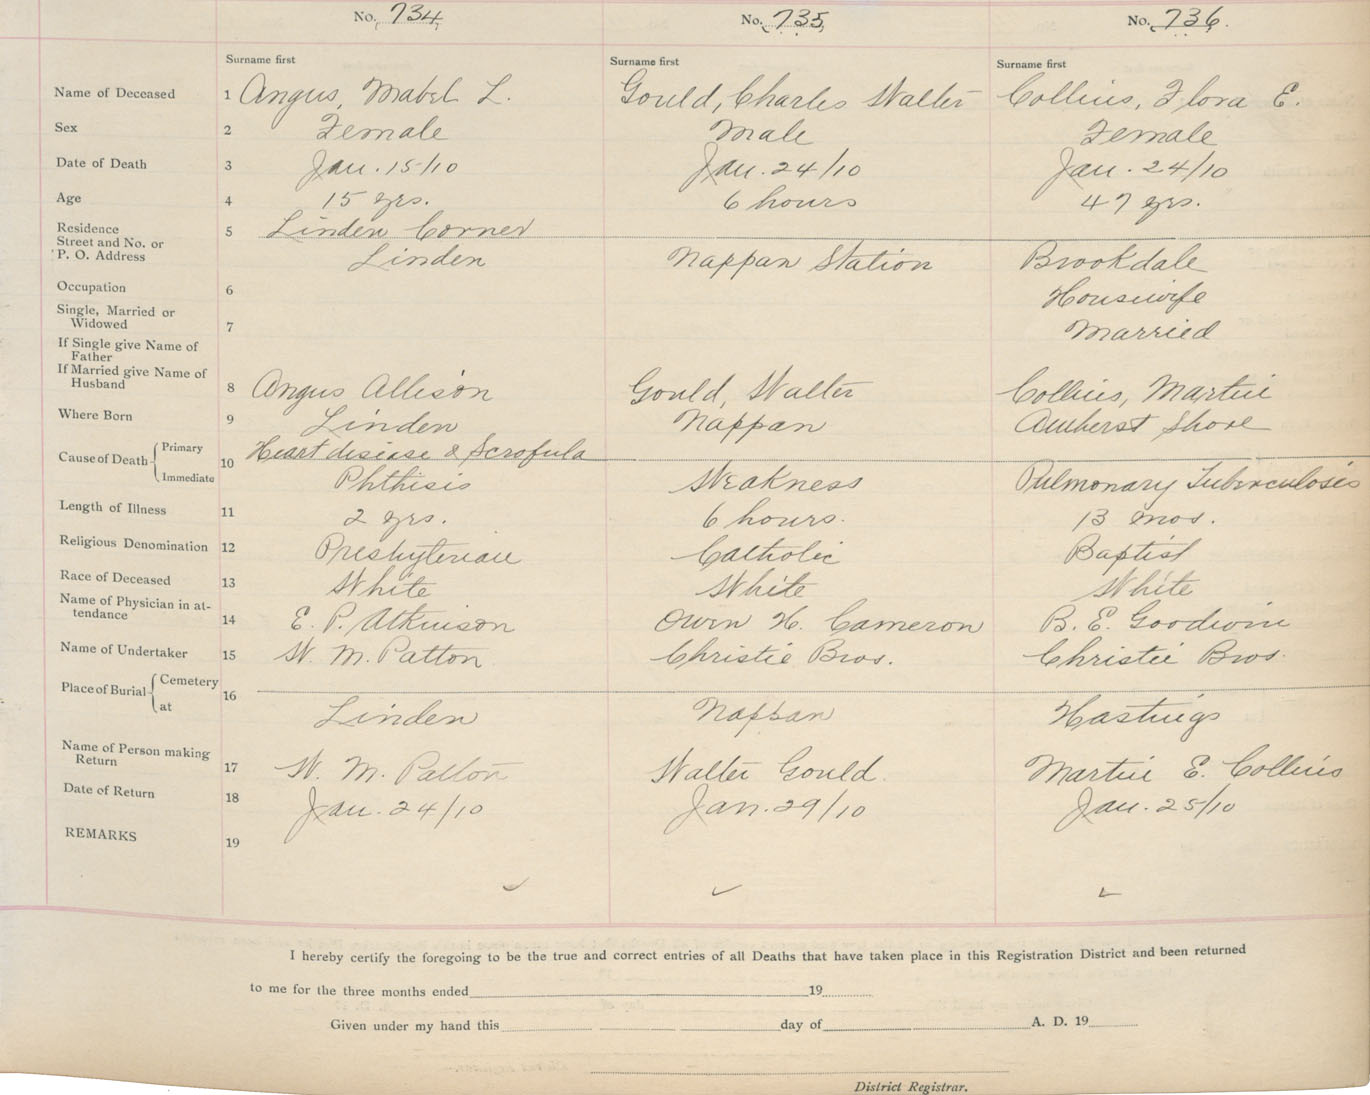 No. 734 No. 735 No. 736
Surname first Surname first Surname first
Name of Deceased 1 Angus, Mabel L. Gould, Charles Walter Collins, Flora E.
Sex 2 Female Male Female
Date of Death 3 Jan. 15/10 Jan. 24/10 Jan. 24/10
Age 4 15 yrs. 6 hours 47 yrs.
Residence 5 Linden Corner
Street and No. or
P. O. Address Linden Nappan Station Brookdale
Occupation 6 Housewife
Single, Married or
Widowed 7 Married
If Single give Name of
Father
If Married give Name of
Husband 8 Angus Allison Gould, Walter Collins, Martin
Where Born 9 Linden Nappan Amherst Shore
Cause of Death Primary 10 Heart disease & Scrofula
Immediate Phthisis Weakness Pulmonary Tuberculosis
Length of Illness 11 2 yrs. 6 hours. 13 mos.
Religious Denomination 12 Presbyterian Catholic Baptist
Race of Deceased 13 White White White
Name of Physician in at-
tendance 14 E. P. Atkinson Owen H. Cameron B. E. Goodwin
Name of Undertaker 15 W. M. Patton Christie Bros. Christie Bros.
Place of Burial Cemetery 16
at Linden Nappan Hastings
Name of Person making
Return 17 W. M. Patton Walter Gould. Martin E. Collins
Date of Return 18 Jan. 24/10 Jan. 29/10 Jan. 25/10
REMARKS 19
I hereby certify the foregoing to be the true and correct entries of all Deaths that have taken place in this Registration District and been returned
to me for the three months ended 19
Given under my hand this day of A. D. 19
District Registrar.